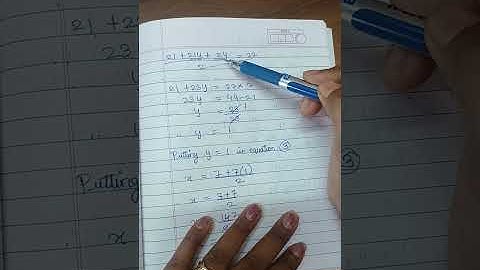 21 + 21y + 2y = 22
2
21 + 23y = 22 × 2
23y = 44 - 21
y = 23 1
23
∴ y = 1
Putting y = 1 in equation ③
x = 7 + 7(1)
2
x = 7+7
2
x = 14 7